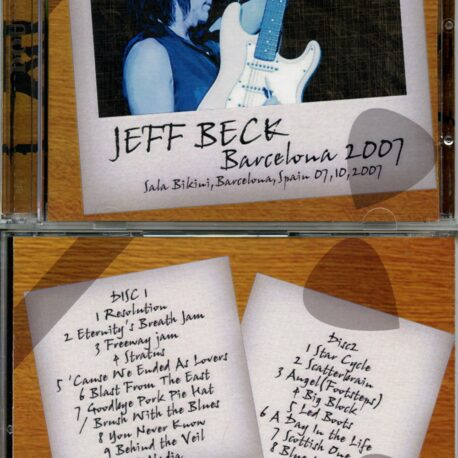 JEFF BECK
Barcelona 2007
Sala Bikini, Barcelona, Spain 07,10,2007
DISC 1
1 Resolution
2 Eternity's Breath Jam
3 Freeway jam
4 Stratus
5 'Cause We Ended As Lovers
6 Blast From The East
7 Goodbye Pork Pie Hat
/ Brush With the Blues
8 You Never Know
9 Behind the Veil
Nadia
Disc2
1 Star Cycle
2 Scatterbrain
3 Angel(Footsteps)
4 Big Block
5 Led Boots
6 A Day In the Life
7 Scottish One
8